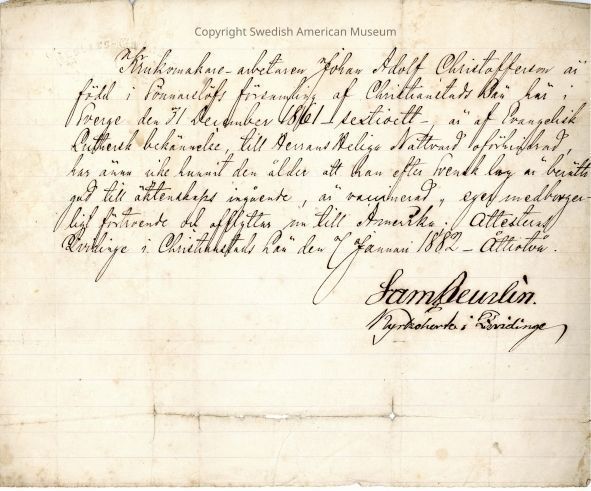 Copyright Swedish American Museum
Krukomakare-arbetaren Johan Adolf Christofferson är
född i Gönnarslöfs församling af Christianstads Län här i
Sverge den 31 December 1861 – sextioett – är af Evangelisk
Luthersk bekännelse, till Herrans Heliga Nattvard oförhindrad,
har ännu icke hunnit den ålder att han efter Svensk lag är berätti
gad till äktenskaps ingående, är vaccinerad, eger medborger-
ligt förtroende och afflyttar nu till Amerika. Attesteras
Qvidinge i Christianstads Län den 7 Januari 1882 – Åttiotvå.
Sam
Kyrkoherde i Qvidinge